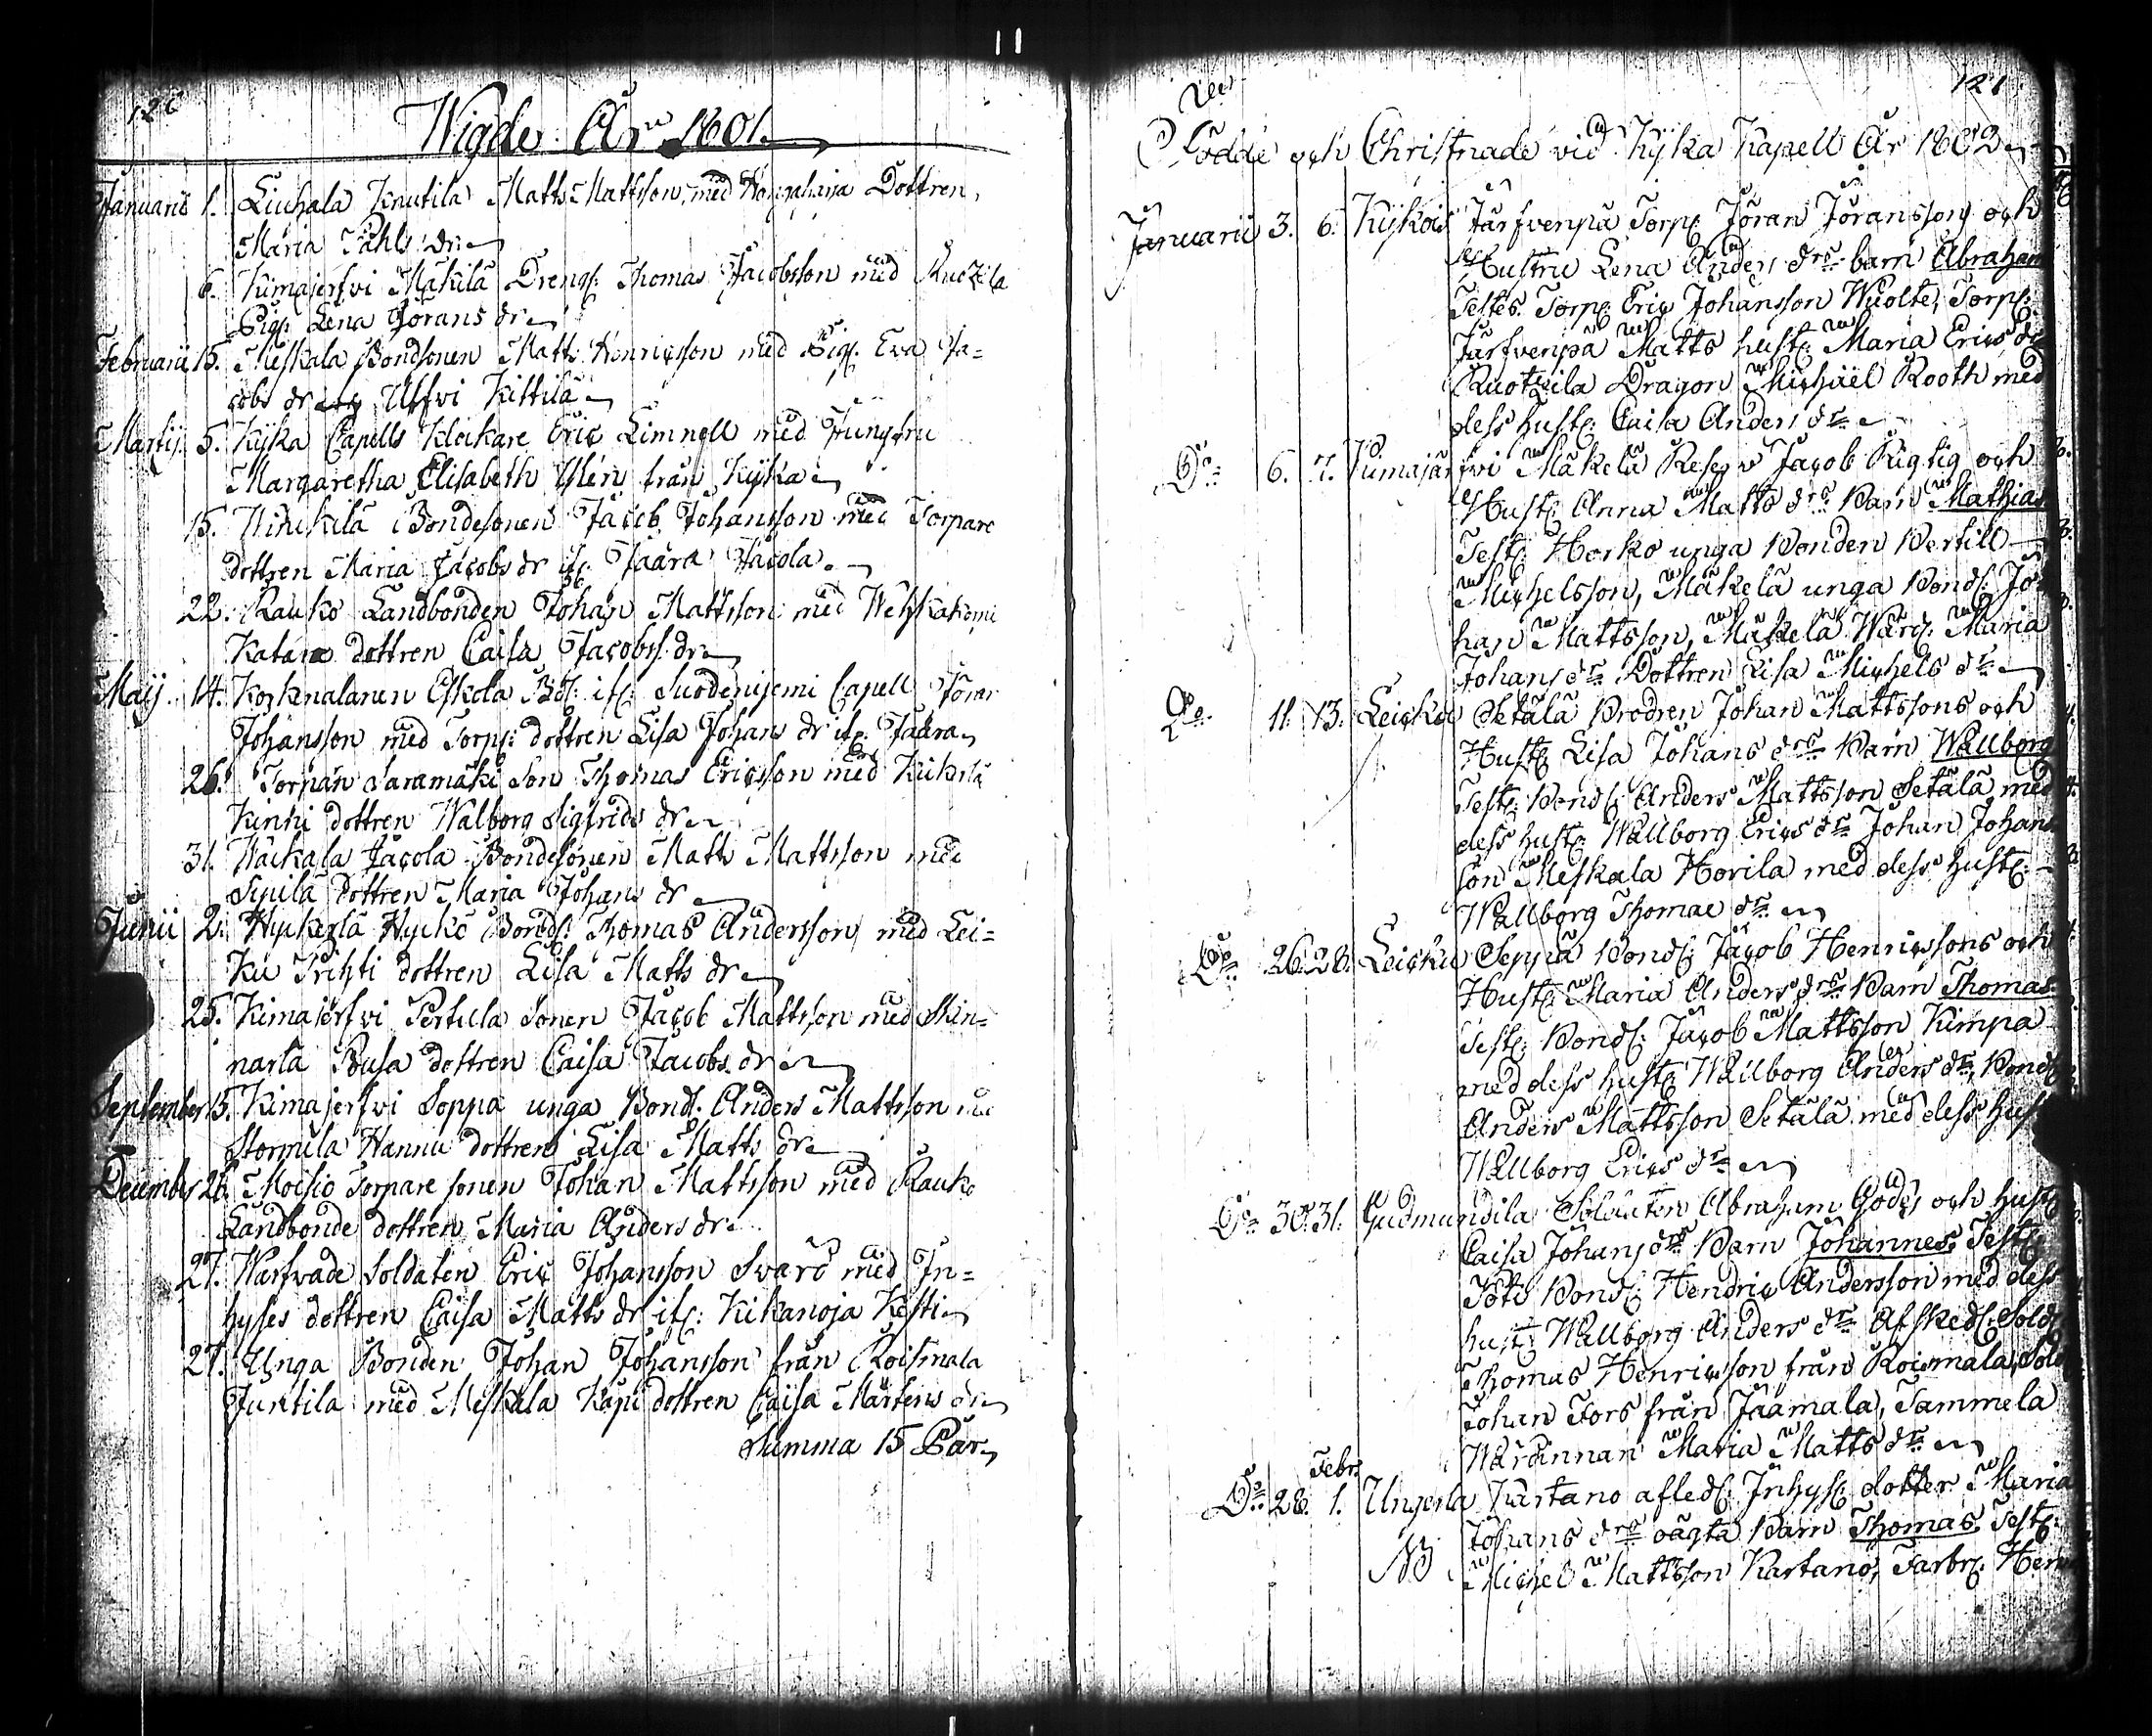 120
Wigde År 1801.
Januarii 1. Liuhala Knutila Matts Mattsson, med Dottren,
Maria Påhls dr
6. Kimajerfvi Mäkilä Drengs: Thomas Jacobsson med
Pig: Lena Jörans dr
Februarii 15. Meskala Bondsonen Matts Henricsson med Pig: Eva Ja=
cobs dr Ulfvi Kittilä
Martij 5. Kyka Capells Klockare Eric Limnell med Jungfru
Margaretha Elisabeth från Kyka
15. Bondesonen Jacob Johansson med Torpare
dottren Maria Jacobs dr if: Jaara Jacola.
22. Rauko Landbonden Johan Mattsson med
dottren Caisa Jacobs dr
Maij 14. Eskola if: Suodenjemi Capell Jöran
Johansson med Torp: dottren Lisa Johans dr if: Jaara
26. Saramäki Son Thomas Ericsson med
Kinni dottren Walborg Sigfrids dr
31. Jacola Bondesonen Matts Mattsson med
Sipilä dottren Maria Johans dr
Junii 2. Hyckö Bonds: Thomas Andersson med Lei=
ku Prihti dottren Lisa Matts dr
25. Kimajerfvi Pertula Sonen Jacob Mattsson med Skin=
narla Pousa dottren Caisa Jacobs dr
September 15. Kimajerfvi Seppä unga Bond: Anders Mattsson
Stormila Hannu dottren Lisa Matts dr
December 26. Moisio Torpare sonen Johan Mattsson med Rauko
Landbonde dottren Maria Anders dr
27. Warfvade Soldaten Eric Johansson Svärd med In=
hyses dottren Caisa Matts dr if: Kikanoja Kesti
27. Unga Bonden Johan Johansson från Roismala
Juntila med Meskala dottren Caisa Mårtens dr
Summa 15 Par
121
Födde och Christnade vid Kyka Kapell År 1802
Januarii 3. 6. Kykois Järfvenpä Torp: Jöran Jöransson och
Hustru Lena Anders drs barn Abraham
Testes. Torp: Eric Johansson Torp:
Järfvenpä Matts hust: Maria Erics dr
Ruotzila Dragon Michäel Rooth med
dess hust: Caisa Anders dr
Do 6. 7. Kimajärfvi Mäkelä Reserv Jacob Rigtig och
Hust: Anna Matts drs Barn Mathias
Test: Horko unga Bonden Bertill
Michelsson, Mäkelä unga Bond: Jo
han Mattsson, Mäkelä Wärd: Maria
Johans dr Dottren Lisa Michels dr
Do 11. 13. Leicku Setälä Brodren Johan Mattssons och
Hust: Lisa Johans drs Barn Wallborg
Test: Bond: Anders Mattsson Setälä med
dess hust: Wallborg Erics dr Johan Johans
son Meskala Horila med dess hust:
Wallborg Thomae dr
Do 26. 28. Leicku Seppä Bond: Jacob Henricssons och
Hust: Maria Anders drs Barn Thomas
Test: Bond: Jacob Mattsson Kimpa
med dess hust: Wallborg Anders dr, Bond:
Anders Mattsson Setälä med dess hust
Wallborg Erics dr
Do 30. 31. Gudmundila Soldaten Abraham Godes och hust:
Caisa Johans drs Barn Johannes. Test:
Bond: Hendric Andersson med dess
hust: Wallborg Anders dr Afsked: Sold:
Thomas Henricsson från Roismala, Sold
Johan Fors från Jaamala, Tammela
Wärdinnan Maria Matts dr
Febr.
Do 28. 1. Ungerla Kartano afled: Inhys: dotter Maria
Johans drs oägta Barn Thomas, Test:
NB Michel Mattsson Kartano, Farbr: